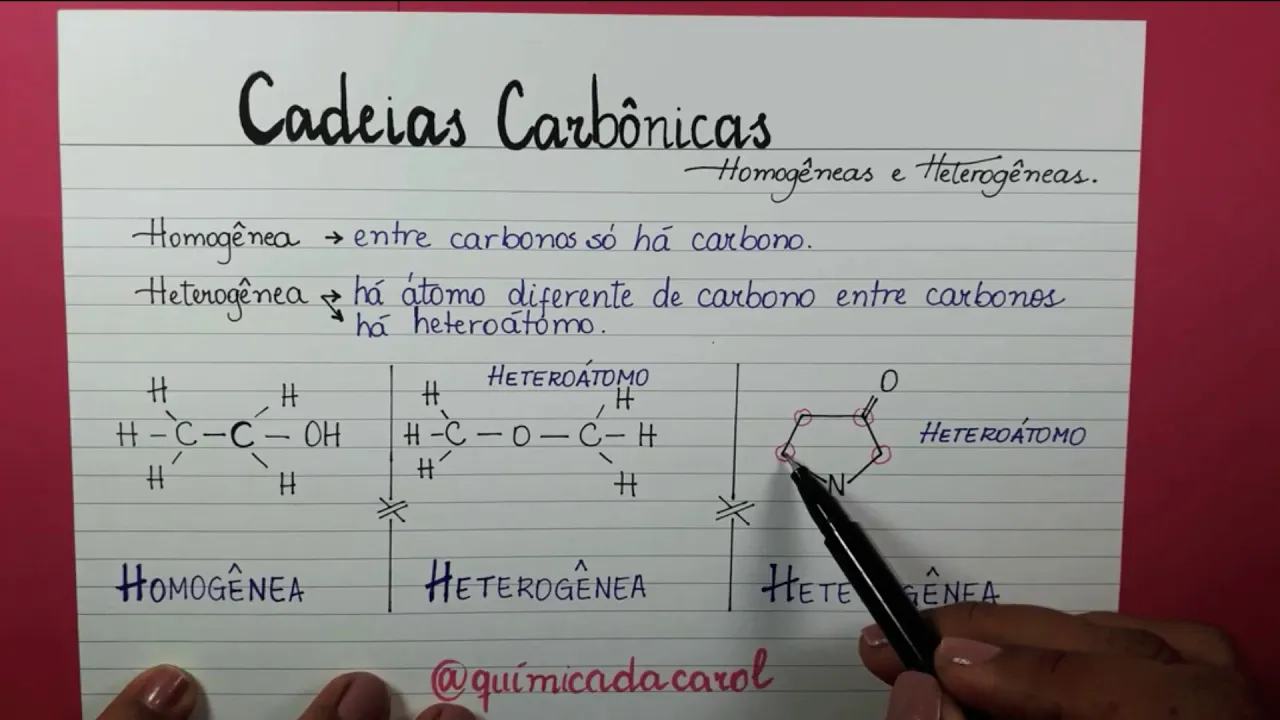 Cadeias Carbônicas
Homogêneas e Heterogêneas.
Homogênea → entre carbonos só há carbono.
Heterogênea → há átomo diferente de carbono entre carbonos
há heteroátomo.
HETEROÁTOMO
H H H H O
H - C - C - OH H - C - O - C - H HETEROÁTOMO
H H H H N
HOMOGÊNEA HETEROGÊNEA HETE GÊNEA
@químicadacarol